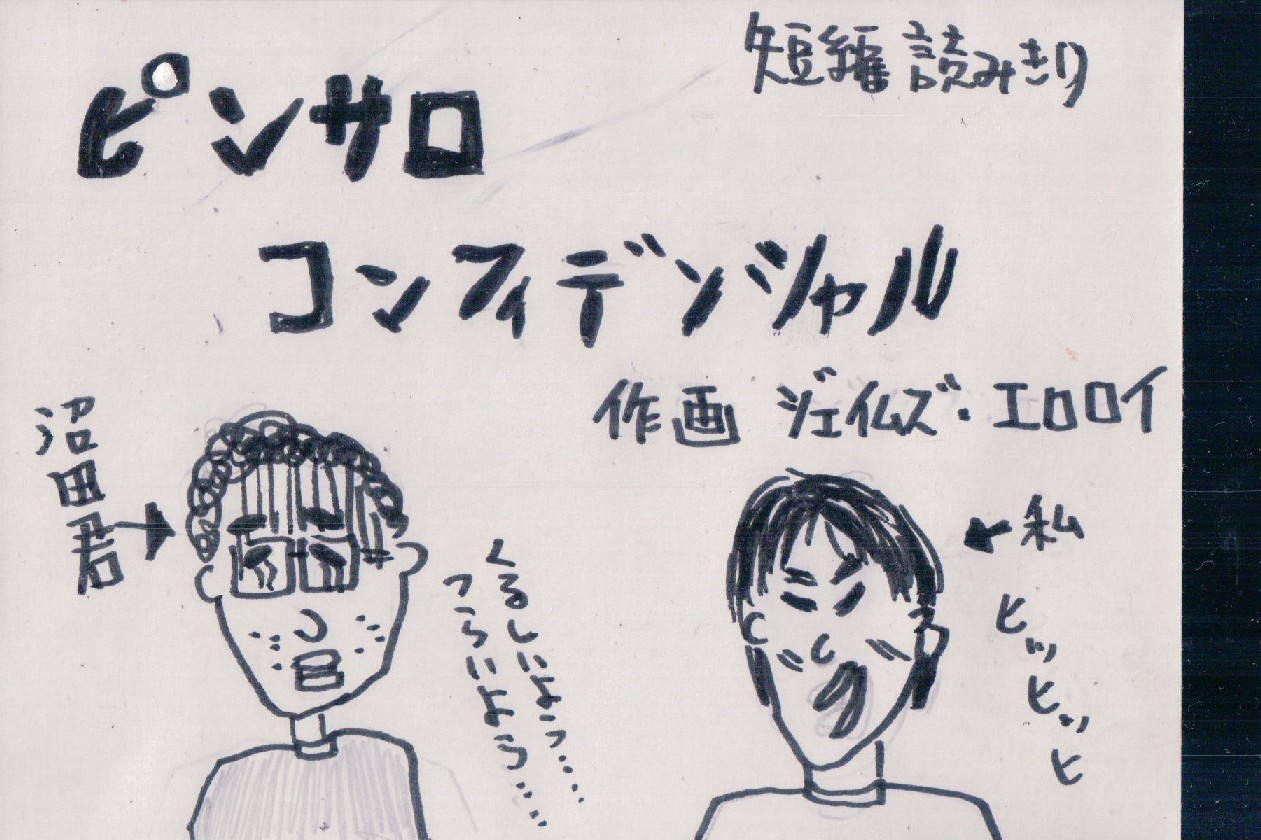 短編読みきり
ピンサロ
コンフィデンシャル
作画 ジェイムズ・エロロイ
沼田君
くるしいよぅ‥‥
つらいよぅ‥‥
私
ヒッヒッヒ